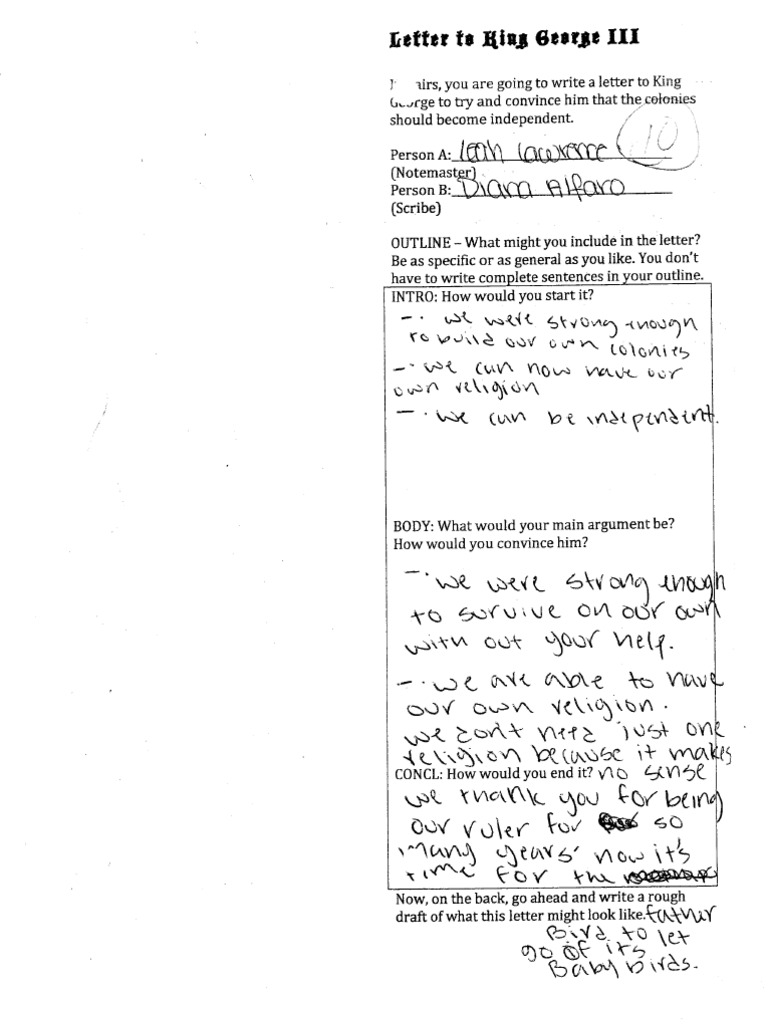 Letter to King George III
airs, you are going to write a letter to King
George to try and convince him that the colonies
should become independent.
10
Person A: Leah Lawrence
(Notemaster)
Person B: Diana Alfaro
(Scribe)
OUTLINE – What might you include in the letter?
Be as specific or as general as you like. You don't
have to write complete sentences in your outline.
INTRO: How would you start it?
- · we were strong enough
to build our own colonies
- · we can now have our
own religion
- · we can be independent.
BODY: What would your main argument be?
How would you convince him?
- · we were strong enough
to survive on our own
with out your help.
- · we are able to have
our own religion.
we don't need just one
religion because it makes
CONCL: How would you end it? no sense
we thank you for being
our ruler for so
many years now it's
time for the
Now, on the back, go ahead and write a rough
draft of what this letter might look like. father
Bird to let
go of its
Baby birds.